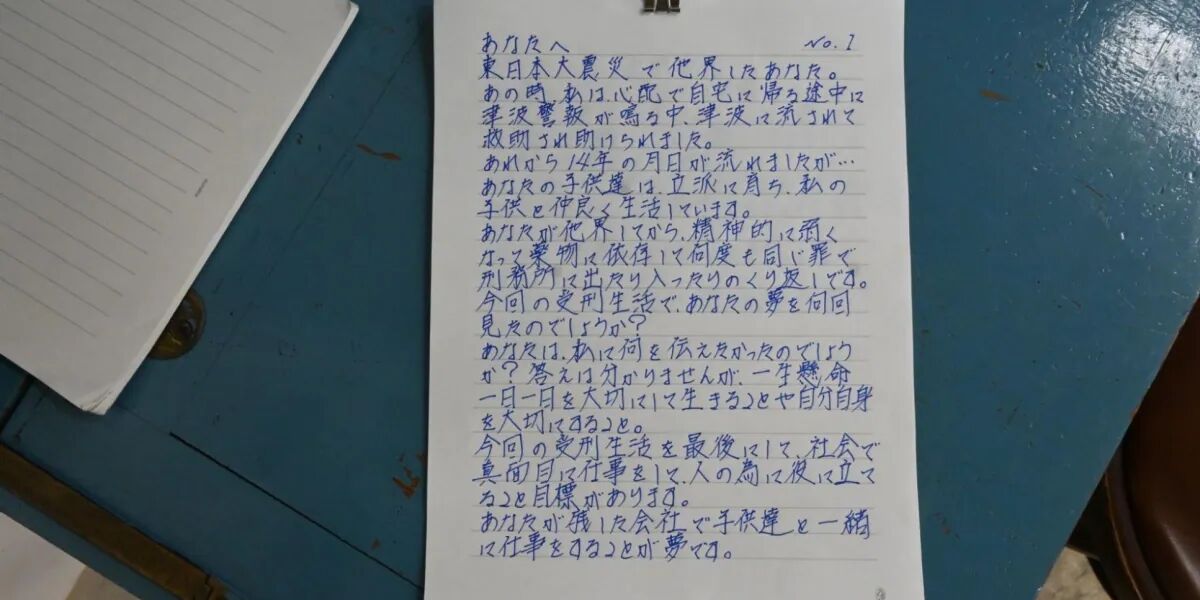 あなたへ No.1
東日本大震災で他界したあなた。
あの時、私は、心配で自宅に帰る途中に
津波警報が鳴る中、津波に流されて
救助され助けられました。
あれから14年の月日が流れましたが…
あなたの子供達は、立派に育ち、私の
子供と仲良く生活しています。
あなたが他界してから、精神的に弱く
なって薬物に依存して何度も同じ罪で
刑務所に出たり入ったりのくり返しです。
今回の受刑生活で、あなたの夢を何回
見たのでしょうか?
あなたは、私に何を伝えたかったのでしょう
か?答えは分かりませんが、一生懸命
一日一日を大切にして生きることや自分自身
を大切にすること。
今回の受刑生活を最後にして、社会で
真面目に仕事をして、人の為に役に立て
ること目標があります。
あなたが残した会社で子供達と一緒
に仕事をすることが夢です。